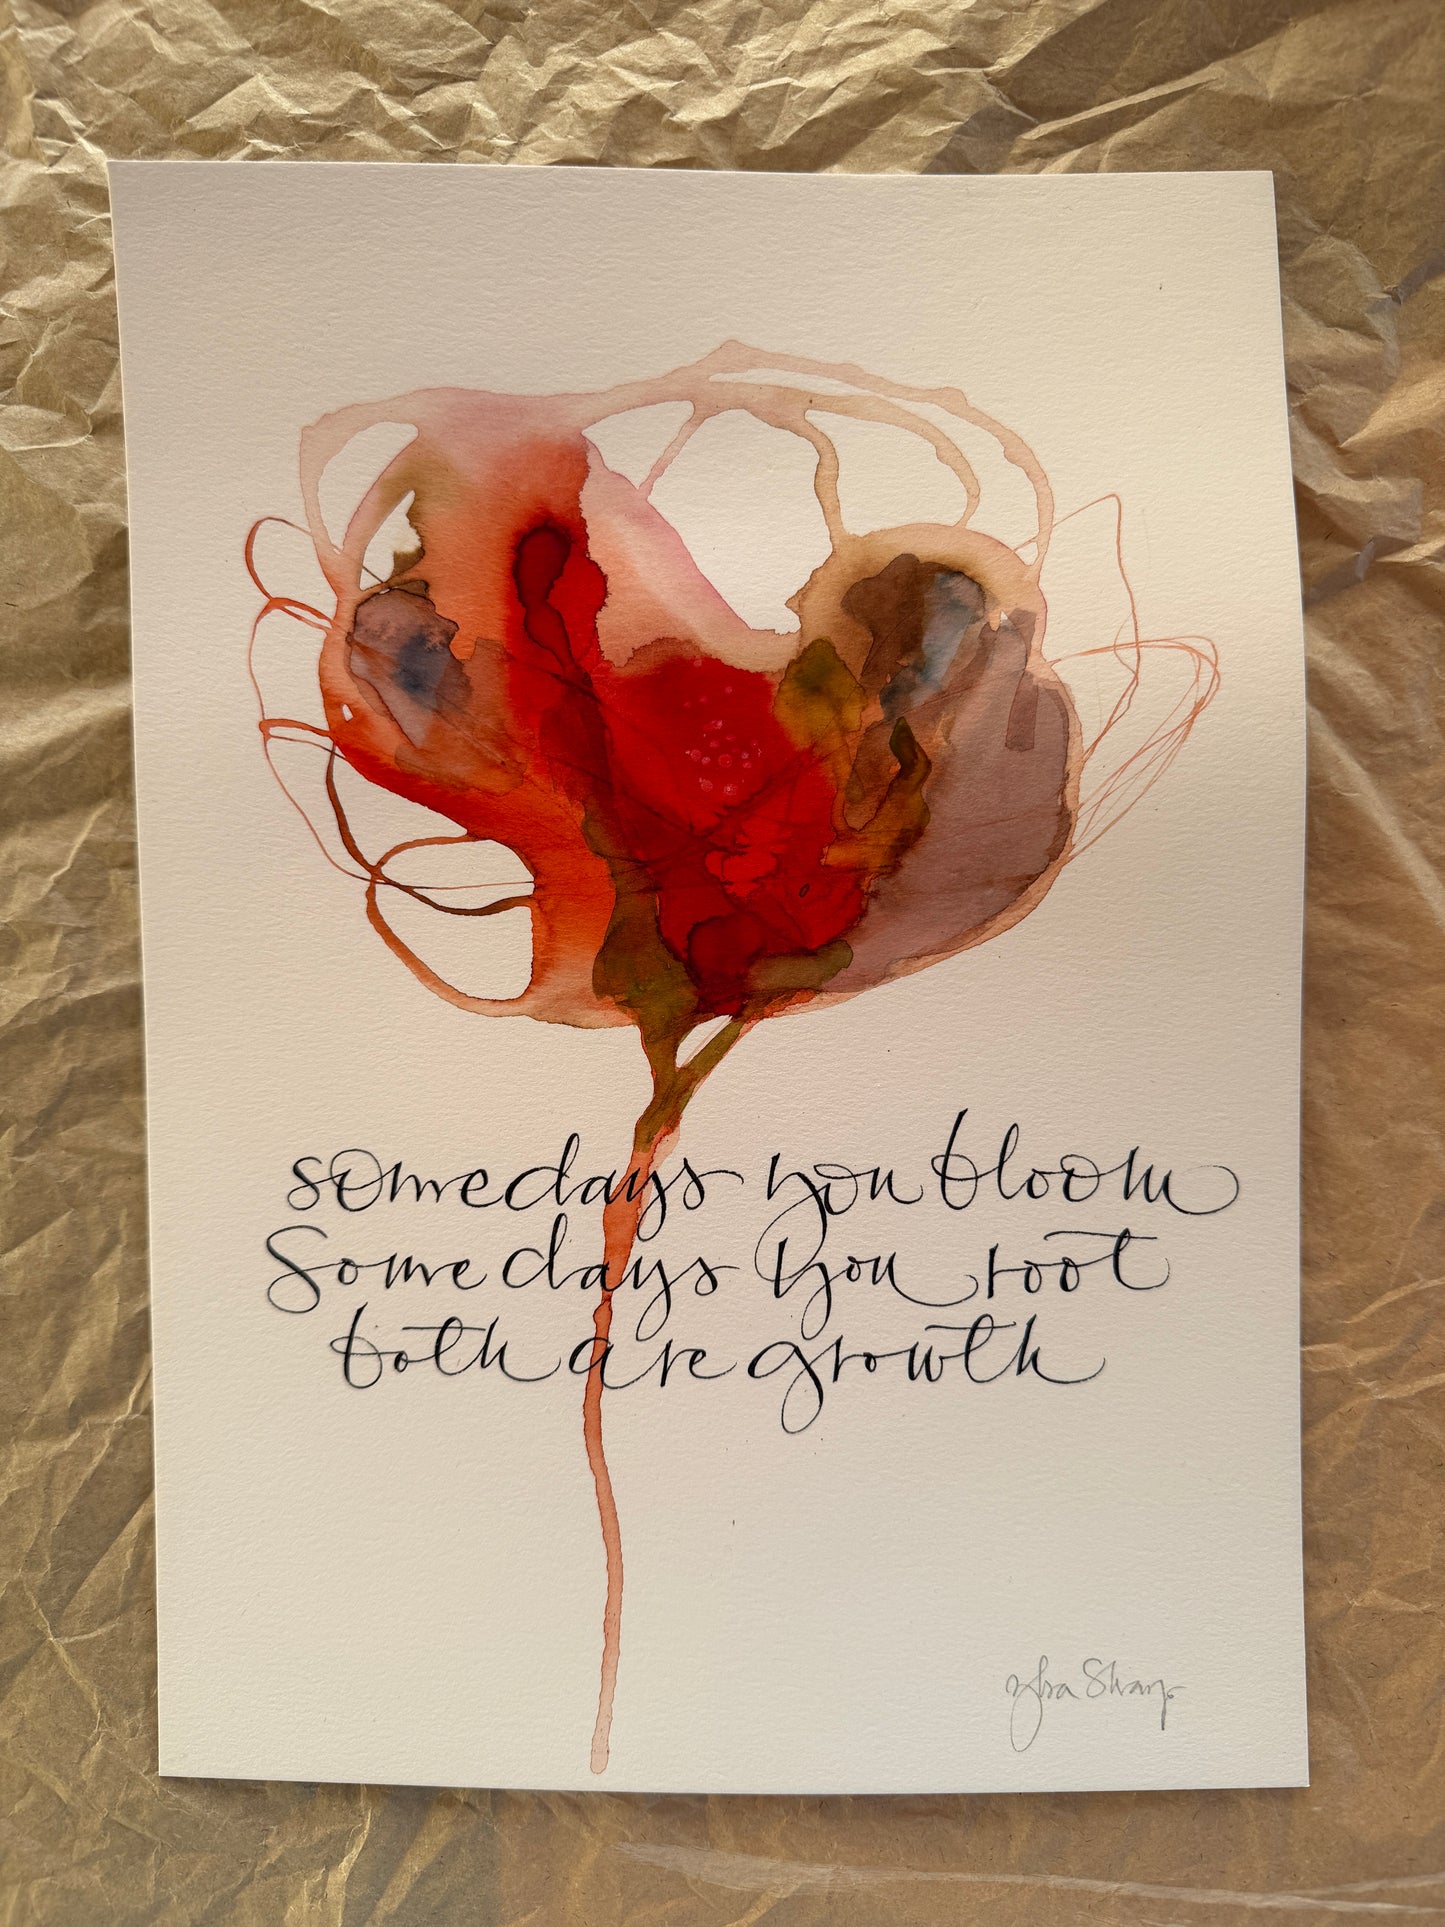 somedays you bloom
Somedays you root
both are growth
Sharp